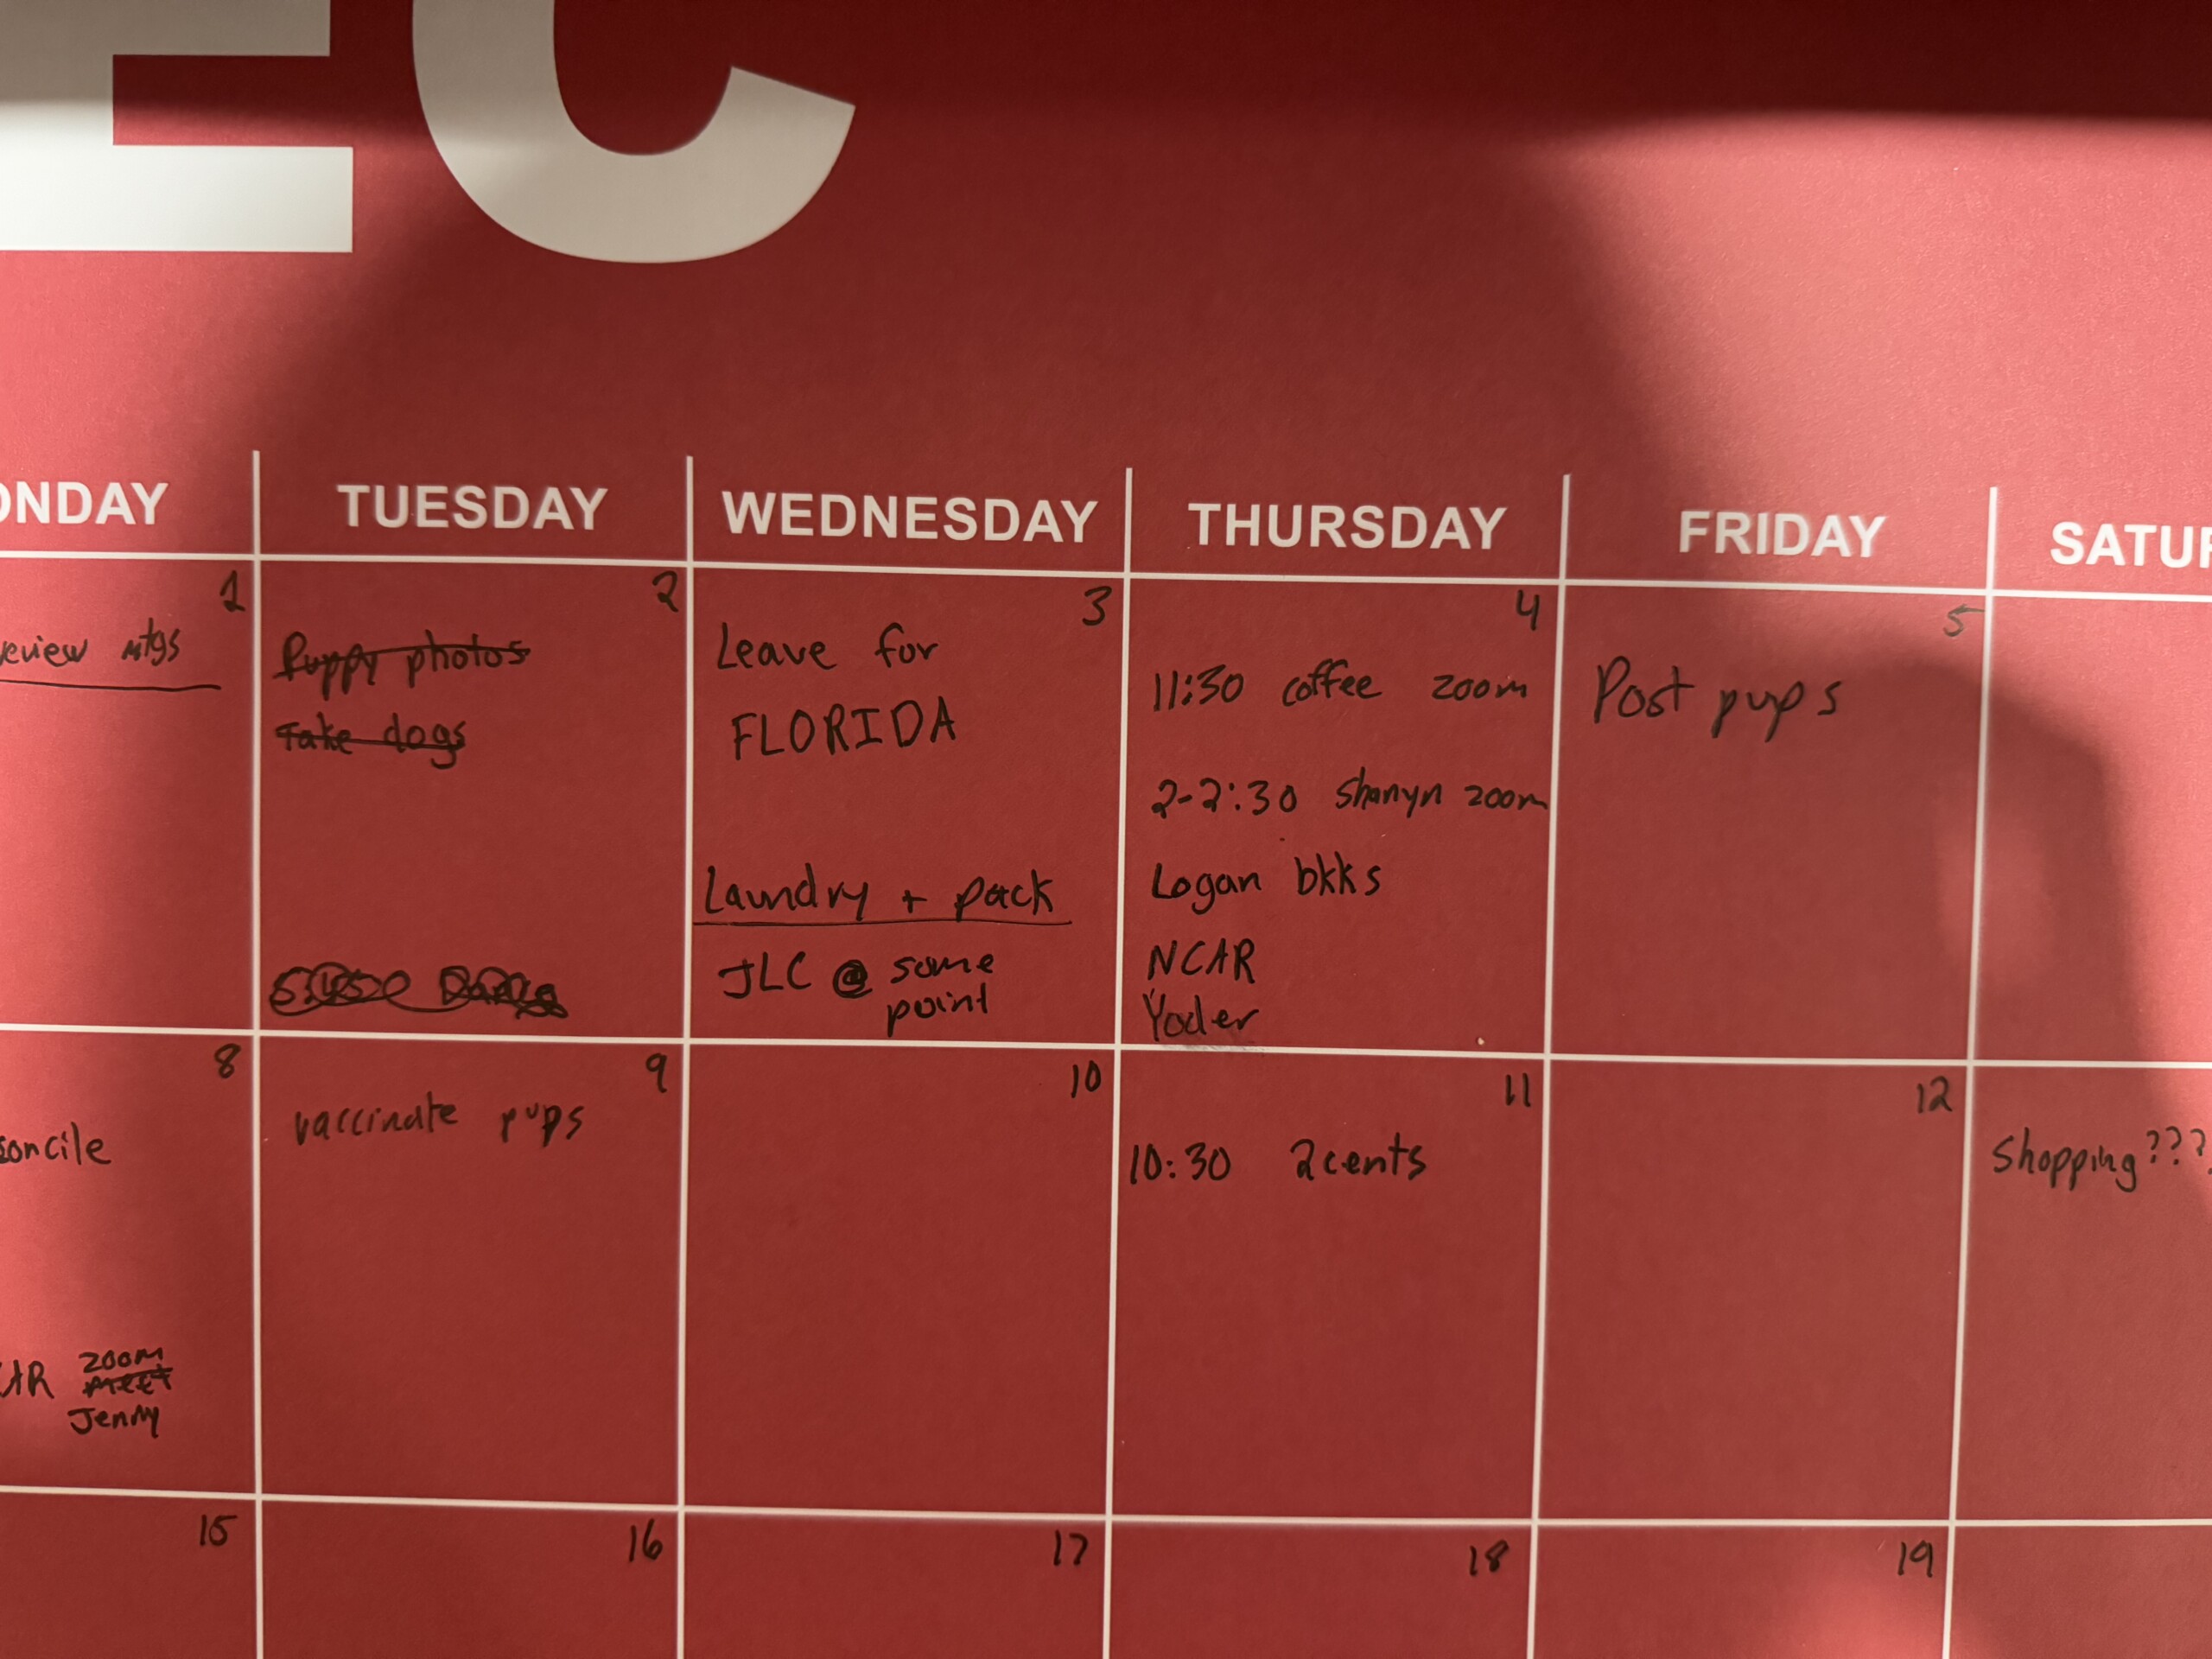 EC
ONDAY TUESDAY WEDNESDAY THURSDAY FRIDAY SATUR
1
eview mtgs
2
Puppy photos
Take dogs
3
Leave for
FLORIDA
Laundry + pack
JLC @ some
point
4
11:30 coffee zoom
2-2:30 shanyn zoom
Logan bkks
NCAR
Yoder
5
Post pups
8
concile
AR zoom
meet
Jenny
9
vaccinate pups
10
11
10:30 2cents
12
Shopping???
15
16
17
18
19